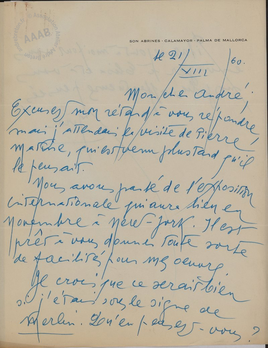 SON ABRINES - CALAMAYOR - PALMA DE MALLORCA
le 21/VIII/60.
Mon cher André:
Excusez mon rétard à vous repondre
mais j'attendais la visite de Pierre
Matisse, qui est venu plus tard qu'il
le pensait.
Nous avons parlé de l'exposition
internationale qui aura lieu en
novembre à New-York. Il est
prêt à vous donner toute sorte
de facilités pour mes oeuvres.
Je crois que ce serait bien
si j'étais sous le signe de
Merlin. Qu'en pensez-vous?